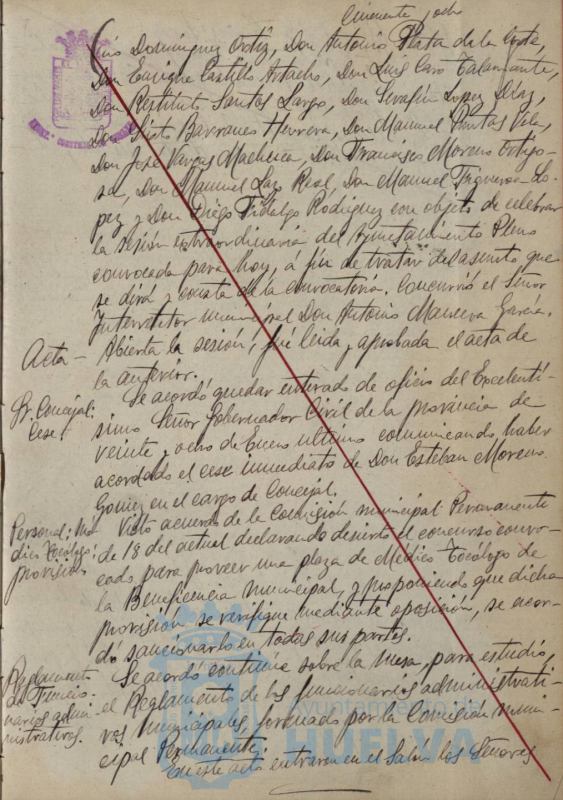 Cincuenta y ocho
Luis Dominguez Ortiz, Don Antonio Plata de la Corte,
Don Enrique Castillo Artacho, Don Luis Caro Talamante,
Don Restituto Santos Largo, Don Serafin Lopez Diaz,
Don Sixto Barranco Herrera, Don Manuel Puntas Vela,
Don José Vargas Machuca, Don Francisco Moreno Ortigo-
sa, Don Manuel Lazo Real, Don Manuel Figueroa Ló-
pez y Don Diego Fidalgo Rodriguez con objeto de celebrar
la sesión extraordinaria del Ayuntamiento Pleno
convocada para hoy, á fin de tratar del asunto que
se dirá y consta de la convocatoria. Concurrió el Señor
Interventor municipal Don Antonio Manuva García.
Acta - Abierta la sesión, fué leida y aprobada el acta de
la anterior.
Sr. Concejal: Se acordó quedar enterado de oficio del Excelentí-
Cese. simo Señor Gobernador Civil de la provincia de
veinte y ocho de Enero último comunicando haber
acordado el cese inmediato de Don Esteban Moreno
Gomez en el cargo de Concejal.
Personal: Mé- Visto acuerdo de la Comisión municipal Permanente
dico Tocólogo: de 18 del actual declarando desierto el concurso convo-
provisión cado para proveer una plaza de Médico Tocólogo de
la Beneficencia municipal, y proponiendo que dicha
provisión se verifique mediante oposición, se acor-
dó sancionarlo en todas sus partes.
Reglamento Se acordó continúe sobre la mesa, para estudio,
de Funcio- el Reglamento de los funcionarios administrati-
narios admi- vos municipales, formado por la Comisión muni-
nistrativos. cipal Permanente.
En este acto entraron en el Salón los Señores
Ayuntamiento de
HUELVA